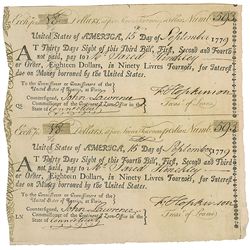 Exch. for 18 Dollars
United States of AMERICA, 15 Day of September 1779
AT Thirty Days Sight of this Third Bill, First, Second and Fourth
not paid, pay to
or Order, Eighteen Dollars, in Ninety Livres Tournois, for Interest
due on Money borrowed by the United States.
To the Commissioner or Commissioners of the
United States of America, at Paris.
Countersigned, John Lawrence
Commissioner of the Continental Loan-Office in the
State of Connecticut
F Hopkinson
Treas. of Loans.
Exch. for 18 Dollars
United States of AMERICA, 15 Day of September 1779
AT Thirty Days Sight of this Fourth Bill, First, Second and Third
not paid, pay to
or Order, Eighteen Dollars, in Ninety Livres Tournois, for Interest
due on Money borrowed by the United States.
To the Commissioner or Commissioners of the
United States of America, at Paris.
Countersigned, John Lawrence
Commissioner of the Continental Loan-Office in the
State of Connecticut
F Hopkinson
Treas. of Loans.